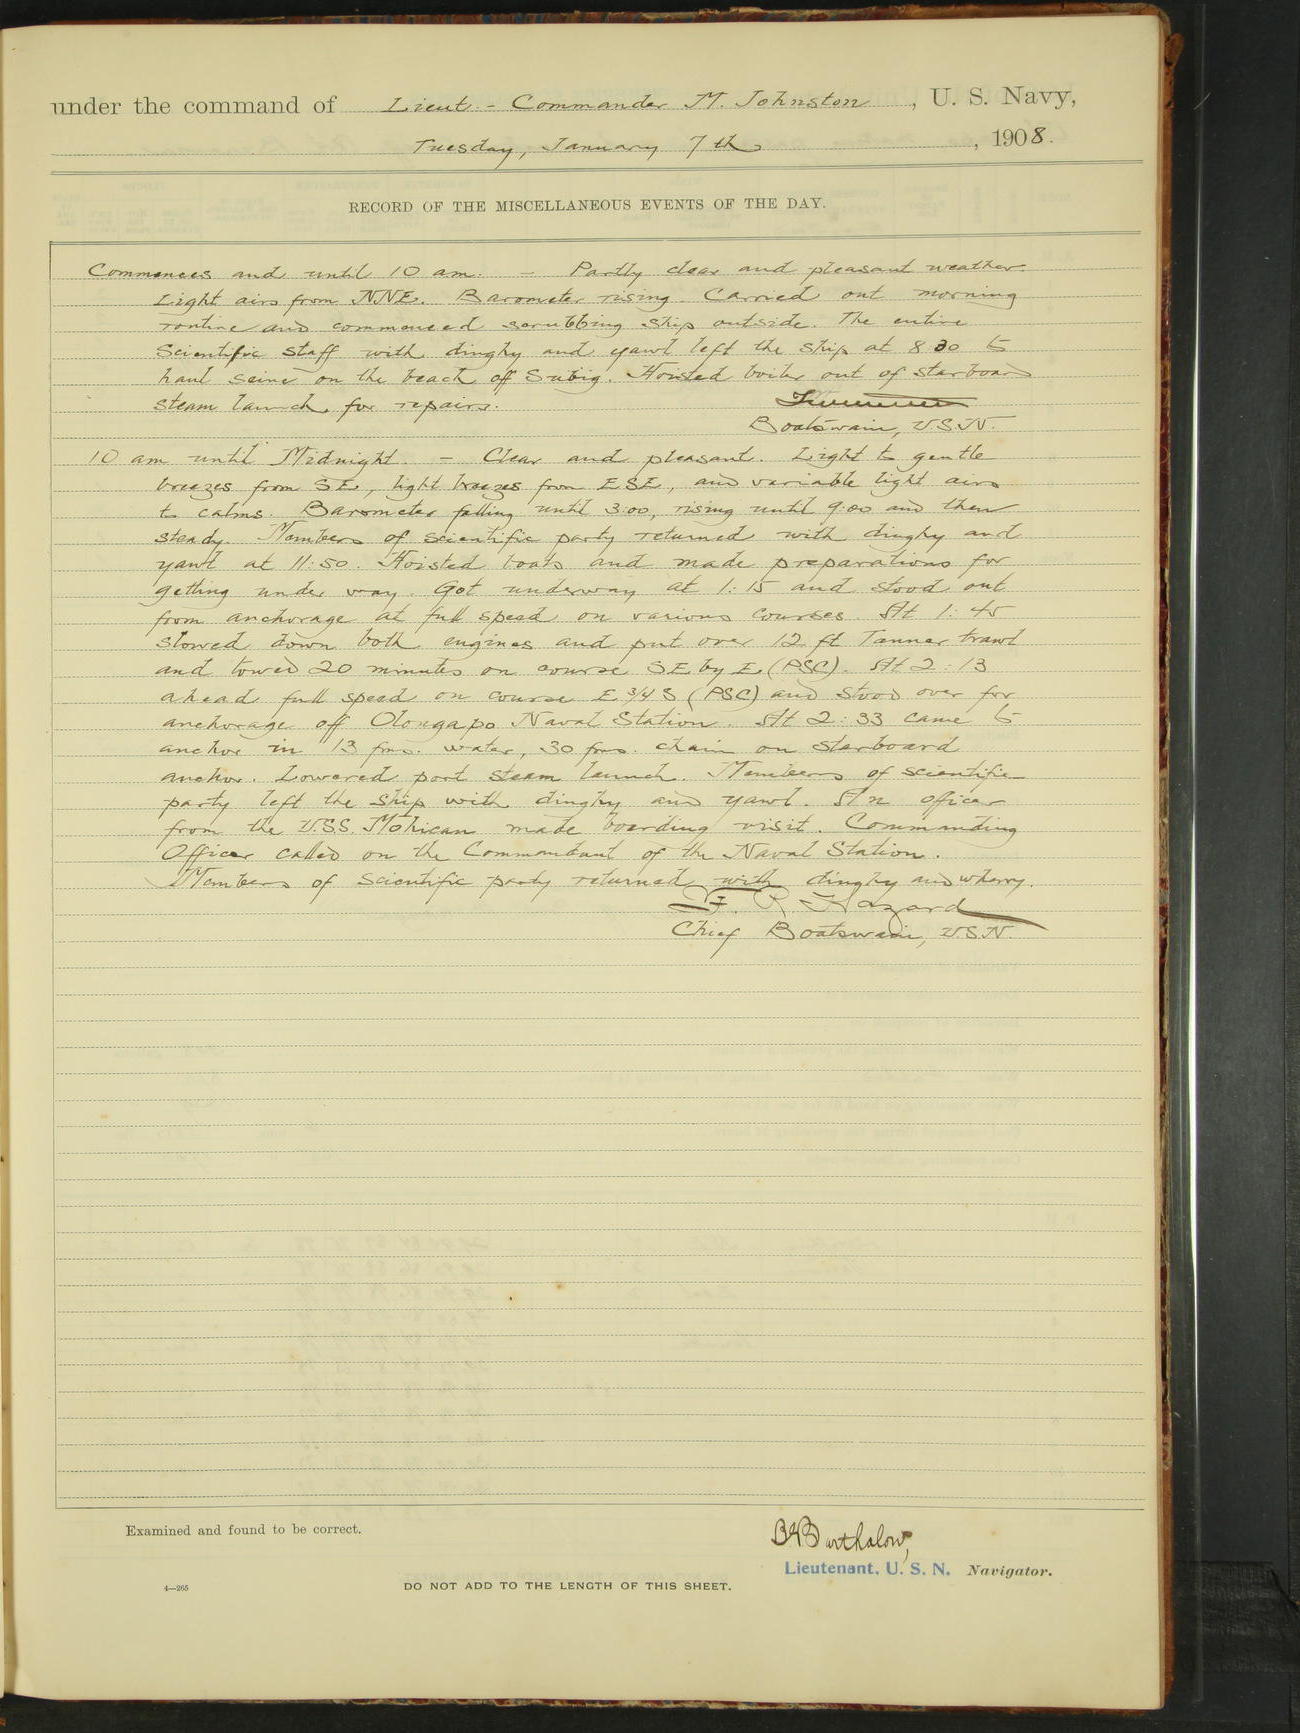 under the command of Lieut.-Commander M. Johnston, U. S. Navy,
Tuesday, January 7th, 1908.
RECORD OF THE MISCELLANEOUS EVENTS OF THE DAY.
Commences and until 10 am. - Partly clear and pleasant weather.
Light airs from NNE. Barometer rising. Carried out morning
routine and commenced scrubbing ship outside. The entire
Scientific staff with dinghy and yawl left the ship at 8 30 to
haul seine on the beach off Subig. Hoisted boiler out of starboard
steam launch for repairs.
Boatswain, USN.
10 am until Midnight. - Clear and pleasant. Light to gentle
breezes from SE, light breezes from ESE, and variable light airs
to calms. Barometer falling until 3:00, rising until 9:00 and then
steady. Members of scientific party returned with dinghy and
yawl at 11:50. Hoisted boats and made preparations for
getting under way. Got underway at 1:15 and stood out
from anchorage at full speed on various courses. At 1:45
slowed down both engines and put over 12 ft Tanner trawl
and towed 20 minutes on course SE by E (PSC). At 2:13
ahead full speed on course E 3/4 S (PSC) and stood over for
anchorage off Olongapo Naval Station. At 2:33 came to
anchor in 13 fms. water, 30 fms. chain on starboard
anchor. Lowered port steam launch. Members of scientific
party left the ship with dinghy and yawl. An officer
from the U.S.S. Mohican made boarding visit. Commanding
Officer called on the Commandant of the Naval Station.
Members of scientific party returned with dinghy and wherry.
F. R. Hazard
Chief Boatswain, USN.
Examined and found to be correct.
Barthalow,
Lieutenant, U. S. N. Navigator.
4—265 DO NOT ADD TO THE LENGTH OF THIS SHEET.